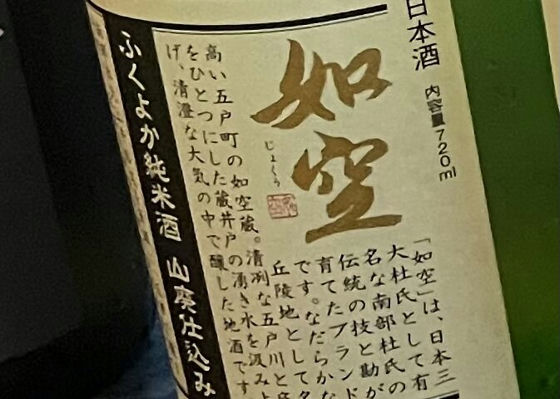 日本酒
内容量720ml
如空
じょくう
「如空」は、日本三
大杜氏として有
名な南部杜氏の
伝統の技と勘が
育てたブランド
です。なだらかな
丘陵地として名
高い五戸町の如空蔵。清冽な五戸川と
をひとつにした蔵井戸の湧き水を汲み上
げ、清澄な大気の中で醸した地酒です
ふくよか純米酒 山廃仕込み